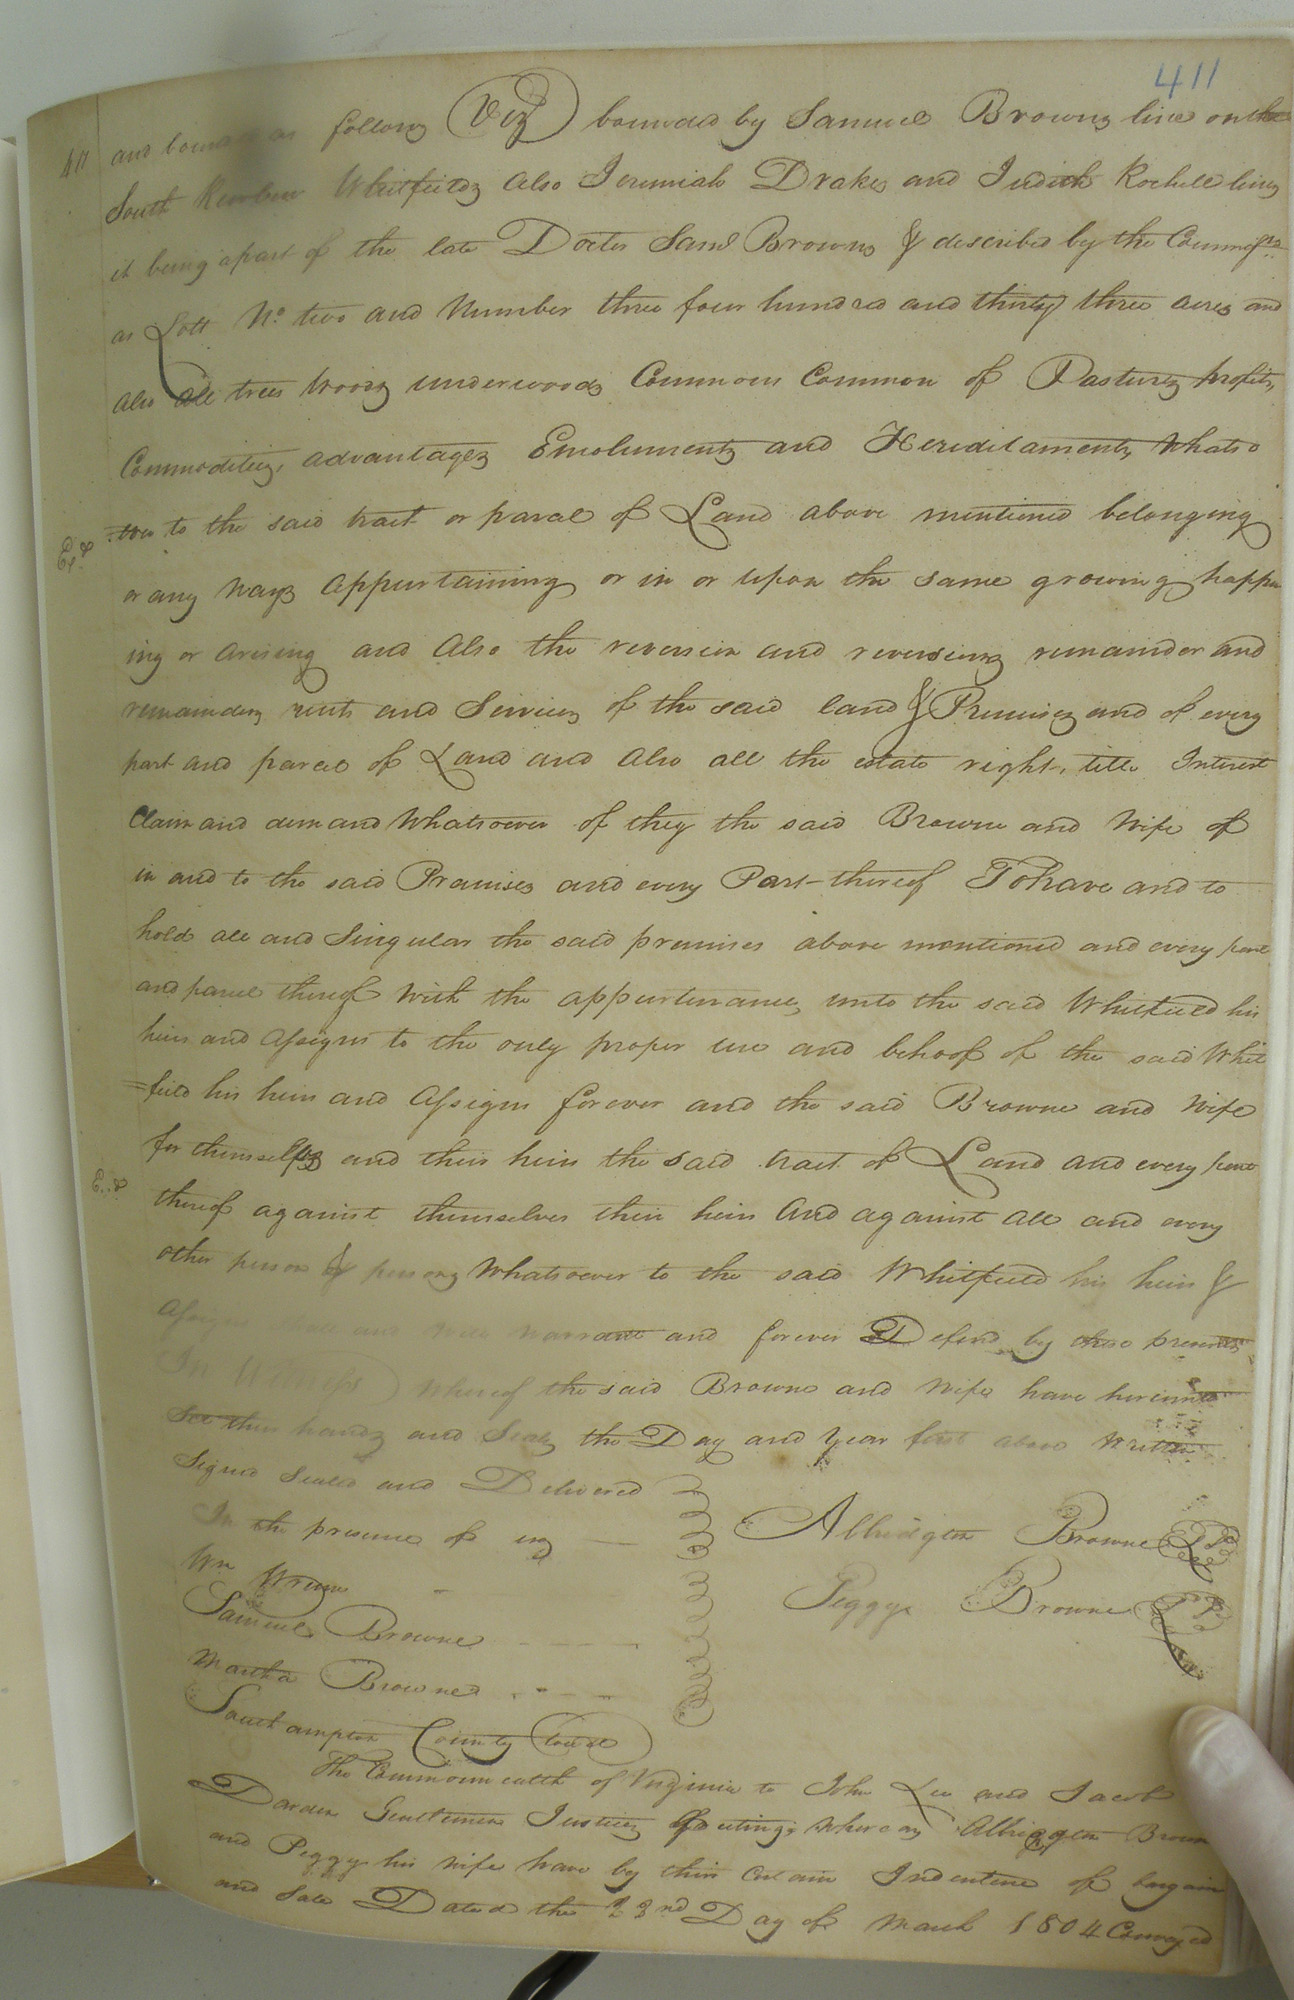 411
411 and bounded as follows (Viz) bounded by Samuel Browns line on the
South Reuben Whitfields also Jeremiah Drakes and Judith Rochell lines
it being apart of the late Doctor Saml Browns & described by the Commisrs
as Lott No. two and Number three four hundred and thirty three acres and
also all trees Woods underwoods Commons Common of Pastures profits,
Commodities, advantages Emoluments and Hereditaments, Whatso
=ever to the said tract or parcel of Land above mentioned belonging
or any Ways appurtaining or in or upon the same growing happen
ing or arising and Also the reversion and reversions remainder and
remainders rents and Services of the said land & Premises and of every
part and parcel of Land and Also all the estate right, title Interest
Claim and demand Whatsoever of they the said Browne and Wife of
in and to the said Premises and every Part thereof To have and to
hold all and Singular the said premises above mentioned and every part
and parcel thereof With the appurtenances, unto the said Whitfield his
heirs and assigns to the only proper use and behoof of the said Whit
=field his heirs and Assigns forever and the said Browne and Wife
for themselves and their heirs the said tract of Land and every part
thereof against themselves their heirs And against all and every
other person & persons Whatsoever to the said Whitfield his heirs &
Assigns shall and Will Warrant and forever Defend by these presents
In Witness) Whereof the said Browne and Wife have hereunto
Set their hands and Seals the Day and Year first above Written
Signed Sealed and Delivered
In the presence of us
Wm
Albridgton Browne
Samuel Browne
Peggy Browne
Martha Browne
Southampton County Court
The Commonwealth of Virginia to John Lee and Jacob
Darden Gentlemen Justices Greeting, Whereas Albridgton Brown
and Peggy his Wife have by their certain Indenture of bargain
and Sale Dated the 23rd Day of March 1804 Conveyed